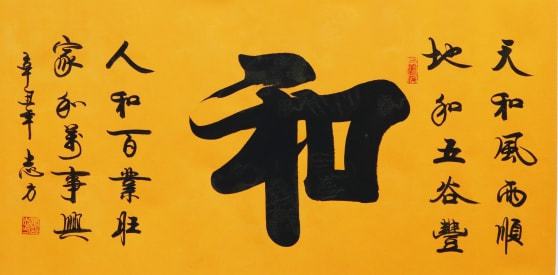 天和風雨順
地和五谷豐
和
人和百業旺
家和萬事興
辛丑年 志方